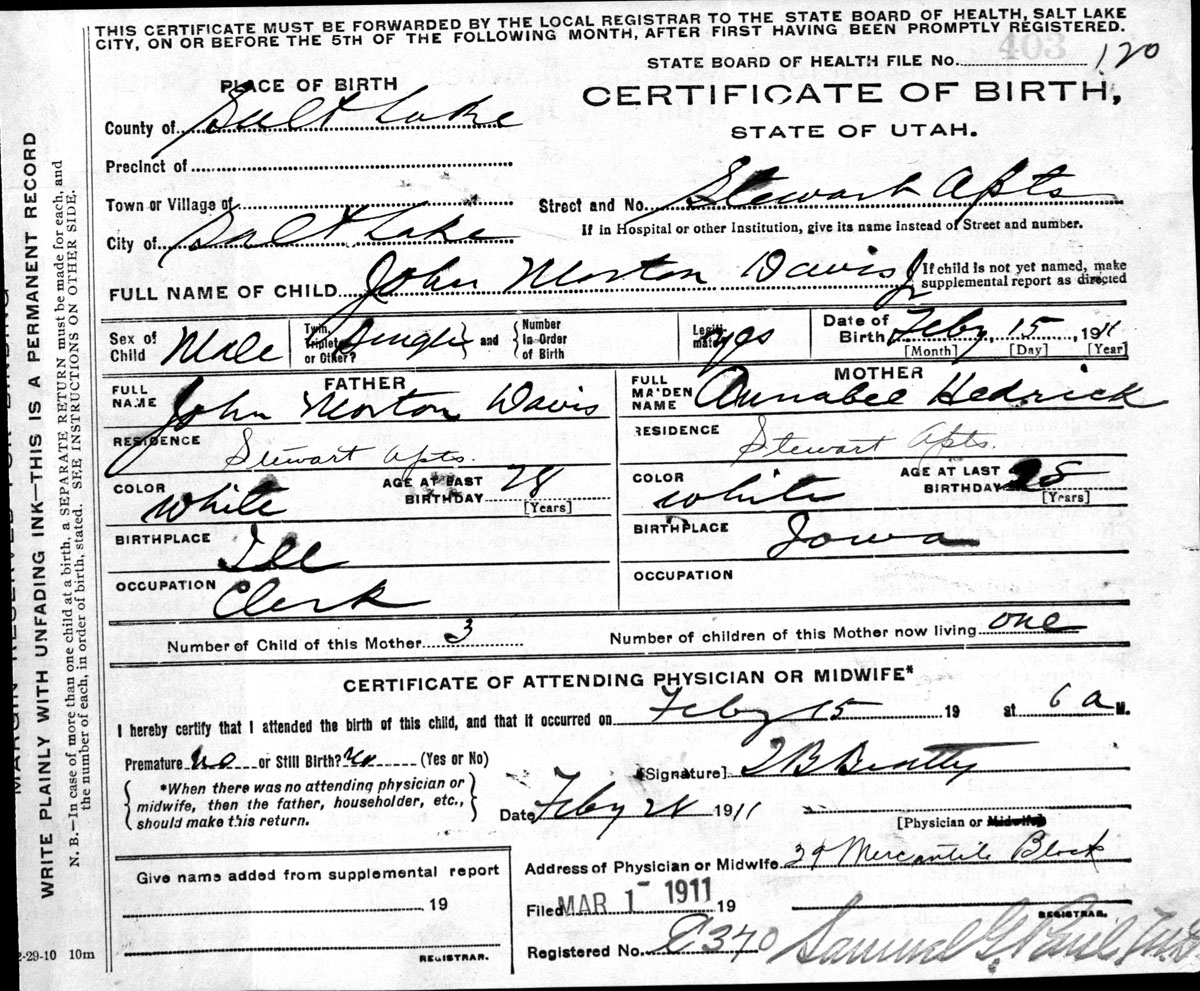 THIS CERTIFICATE MUST BE FORWARDED BY THE LOCAL REGISTRAR TO THE STATE BOARD OF HEALTH, SALT LAKE
CITY, ON OR BEFORE THE 5TH OF THE FOLLOWING MONTH, AFTER FIRST HAVING BEEN PROMPTLY REGISTERED.
403
STATE BOARD OF HEALTH FILE No. 120
PLACE OF BIRTH
CERTIFICATE OF BIRTH,
STATE OF UTAH.
County of Salt Lake
Precinct of
Town or Village of
Street and No. Stewart Apts
City of Salt Lake
If in Hospital or other Institution, give its name instead of Street and number.
FULL NAME OF CHILD John Morton Davis Jr
If child is not yet named, make
supplemental report as directed
Sex of Child Male
Twin, Triplet, or Other? Single and Number In Order of Birth
Legitimate yes
Date of Birth Feby 15, 1911
[Month] [Day] [Year]
FATHER
FULL NAME John Morton Davis
RESIDENCE Stewart Apts.
COLOR White
AGE AT LAST BIRTHDAY 28
[Years]
BIRTHPLACE Ill
OCCUPATION Clerk
MOTHER
FULL MAIDEN NAME Annabee Hedrick
RESIDENCE Stewart Apts.
COLOR White
AGE AT LAST BIRTHDAY 28
[Years]
BIRTHPLACE Iowa
OCCUPATION
Number of Child of this Mother 3
Number of children of this Mother now living one
CERTIFICATE OF ATTENDING PHYSICIAN OR MIDWIFE*
I hereby certify that I attended the birth of this child, and that it occurred on Feby 15 19 at 6 a M.
Premature no or Still Birth? no (Yes or No)
*When there was no attending physician or
midwife, then the father, householder, etc.,
should make this return.
[Signature] T B Beatty
Date Feby 28 1911
[Physician or Midwife]
Address of Physician or Midwife 39 Mercantile Block
Give name added from supplemental report
19
REGISTRAR.
Filed MAR 1 - 1911 19
REGISTRAR.
Registered No. C370
Samuel G. Paul M.D.
2-29-10 10m
MARGIN RESERVED FOR BINDING
WRITE PLAINLY WITH UNFADING INK—THIS IS A PERMANENT RECORD
N. B.—In case of more than one child at a birth, a SEPARATE RETURN must be made for each, and
the number of each, in order of birth, stated. SEE INSTRUCTIONS ON OTHER SIDE.